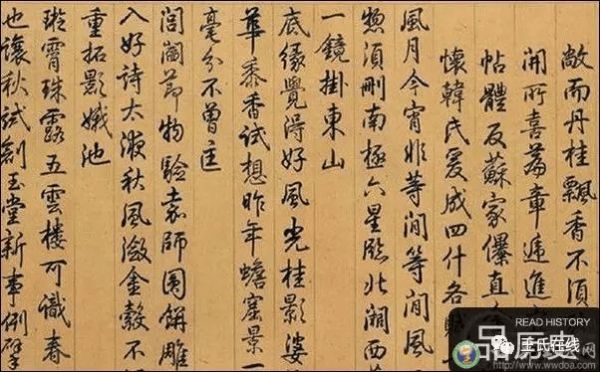 敞而丹桂飄香不須
開所喜荐章遞進
帖體反蘇家儤直
懷韓氏爰成四什各
風月今宵非等閒等閒風
惣須刪南極六星臨北 西
一鏡掛東山
底緣覺得好風光桂影婆
華黍香試想昨年蟾窟景一
毫分不曾
閶闔節物驗 師 餅雕
入好詩太液秋風 金縠不
重拓影娥池
璇霄珠露五雲樓可識春
也讓秋試創玉堂新事例擘
READ HISTORY
品历史
王氏在线
www.wwdoa.com